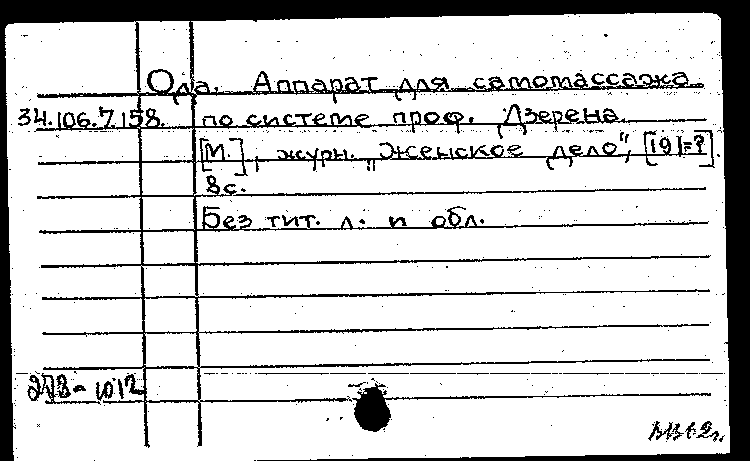 Ода. Аппарат для самомассажа
34.106.7.158. по системе проф. Дзерена.
[М.], журн. „Женское дело", [191-?].
8с.
Без тит. л. и обл.